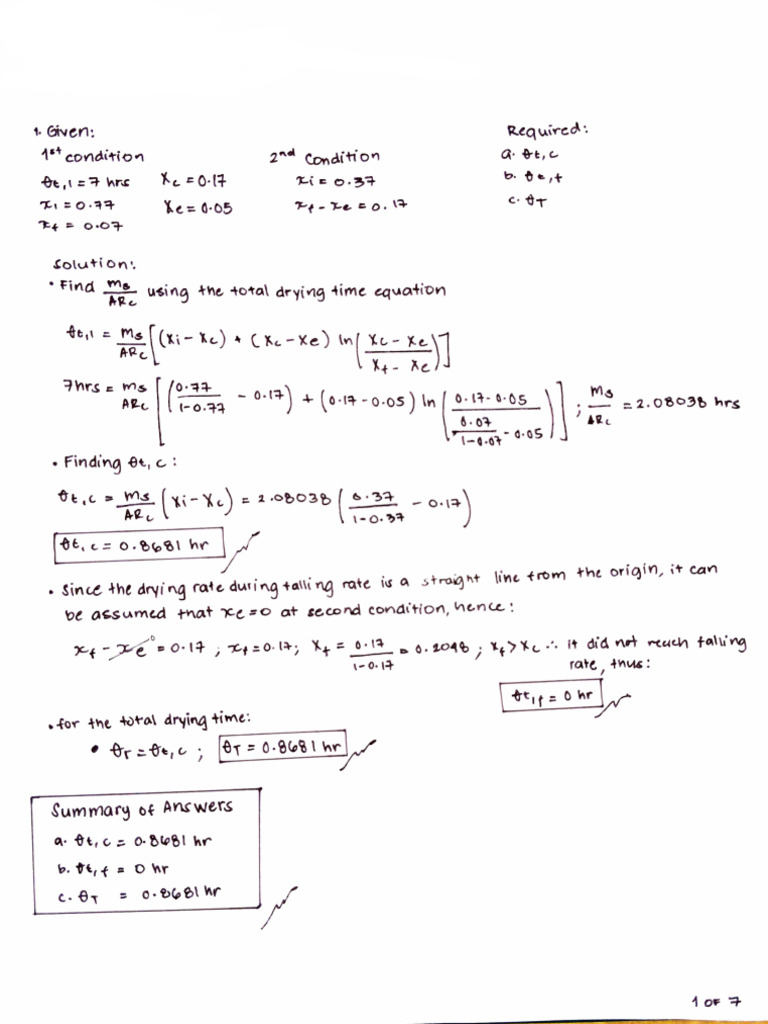 1. Given:
1st condition
θt,1 = 7 hrs   Xc = 0.17
x1 = 0.77   Xe = 0.05
xf = 0.07
2nd Condition
xi = 0.37
xf - xe = 0.17
Required:
a. θt,c
b. θt,f
c. θT
Solution:
• Find ms/ARc using the total drying time equation
θt,1 = ms/ARc [(Xi - Xc) + (Xc - Xe) ln ((Xc - Xe)/(Xf - Xe))]
7hrs = ms/ARc [(0.77/(1-0.77) - 0.17) + (0.17 - 0.05) ln ((0.17-0.05)/(0.07/(1-0.07) - 0.05))] ; ms/ARc = 2.08038 hrs
• Finding θt,c :
θt,c = ms/ARc (Xi - Xc) = 2.08038 (0.37/(1-0.37) - 0.17)
θt,c = 0.8681 hr
• Since the drying rate during falling rate is a straight line from the origin, it can
be assumed that xe=0 at second condition, hence:
xf - xe⁰ = 0.17 ; xf = 0.17; Xf = 0.17/(1-0.17) = 0.2048 ; Xf > Xc ∴ it did not reach falling
rate, thus:
θt,f = 0 hr
• for the total drying time:
• θT = θt,c ; θT = 0.8681 hr
Summary of Answers
a. θt,c = 0.8681 hr
b. θt,f = 0 hr
c. θT = 0.8681 hr
1 OF 7